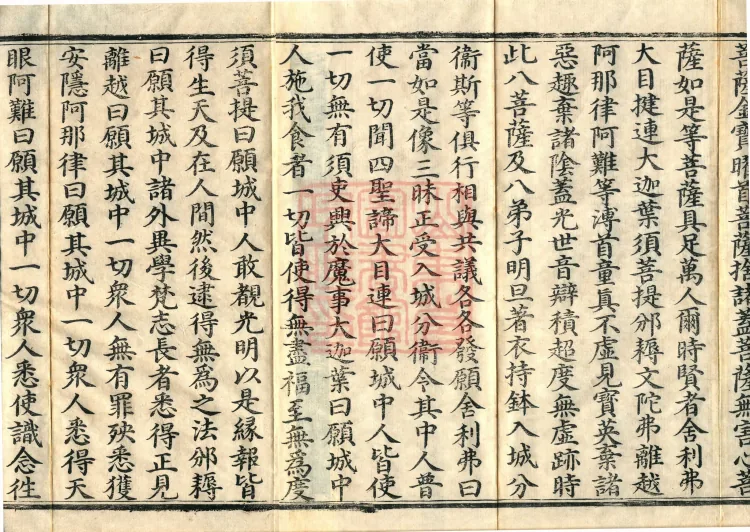 菩薩金寶曜首菩薩捨諸蓋菩薩無害心菩
薩如是等菩薩具足萬人爾時賢者舍利弗
大目揵連大迦葉須菩提邠耨文陀弗離越
阿那律阿難等溥首童真不虛見寶英棄諸
惡趣棄諸陰蓋光世音辯積超度無虛跡時
此八菩薩及八弟子明旦著衣持鉢入城分
衞斯等俱行相與共議各各發願舍利弗曰
當如是像三昧正受入城分衞令其中人普
使一切聞四聖諦大目連曰願城中人皆使
一切無有須吏興於魔事大迦葉曰願城中
人施我食者一切皆使得無盡福至無爲度
須菩提曰願城中人敢覩光明以是緣報皆
得生天及在人間然後逮得無爲之法邠耨
曰願其城中諸外異學梵志長者悉得正見
離越曰願其城中一切衆人無有罪殃悉獲
安隱阿那律曰願其城中一切衆人悉得天
眼阿難曰願其城中一切衆人悉使識念往